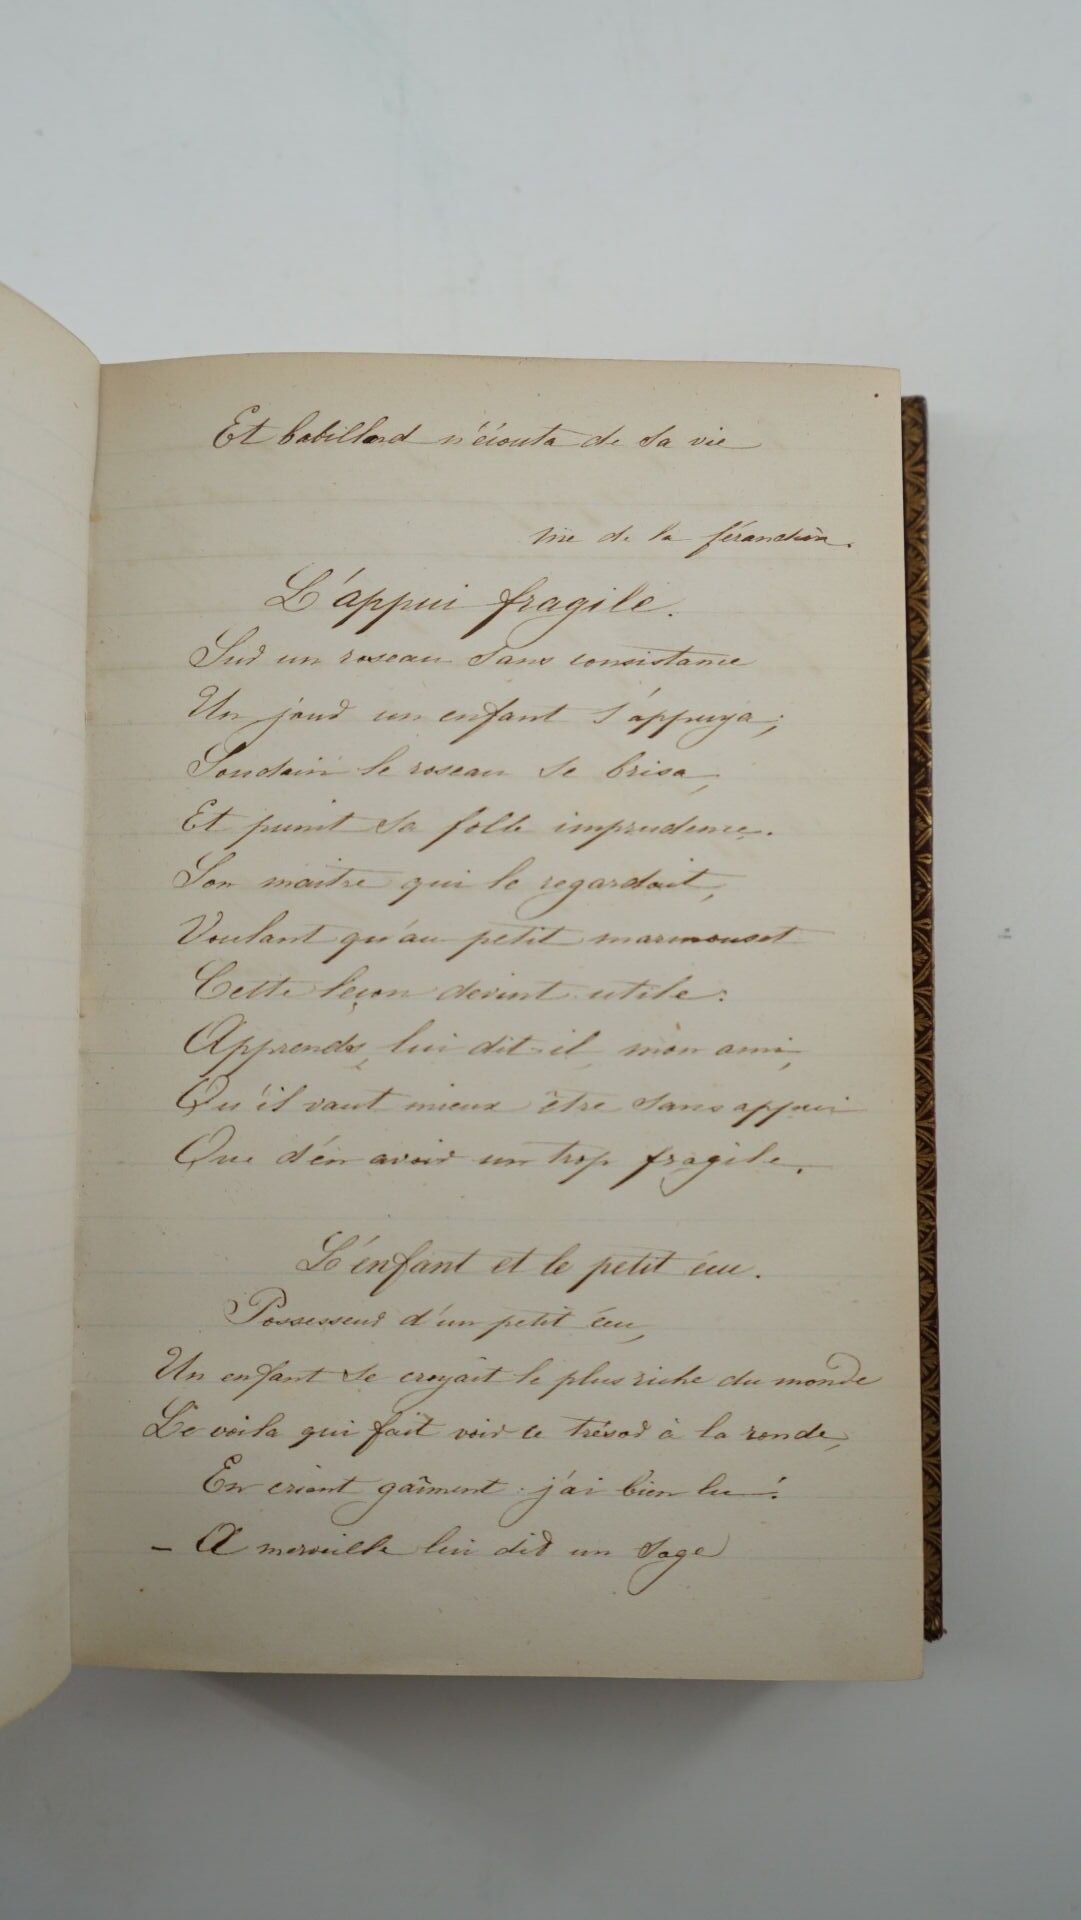 Et babillard n'écouta de sa vie
Mie de la férandière.
L'appui fragile.
Sur un roseau sans consistance
Un jour un enfant s'appuya;
Soudain le roseau se brisa,
Et punit sa folle imprudence.
Son maitre qui le regardait,
Voulant qu'au petit marmouset
Cette leçon devint utile:
Apprends, lui dit-il, mon ami,
Qu'il vaut mieux être sans appui
Que d'en avoir un trop fragile.
L'enfant et le petit écu.
Possesseur d'un petit écu,
Un enfant se croyait le plus riche du monde
Le voila qui fait voir ce trésor à la ronde,
En criant gaîment: j'ai bien lu!
– A merveille lui dit un sage